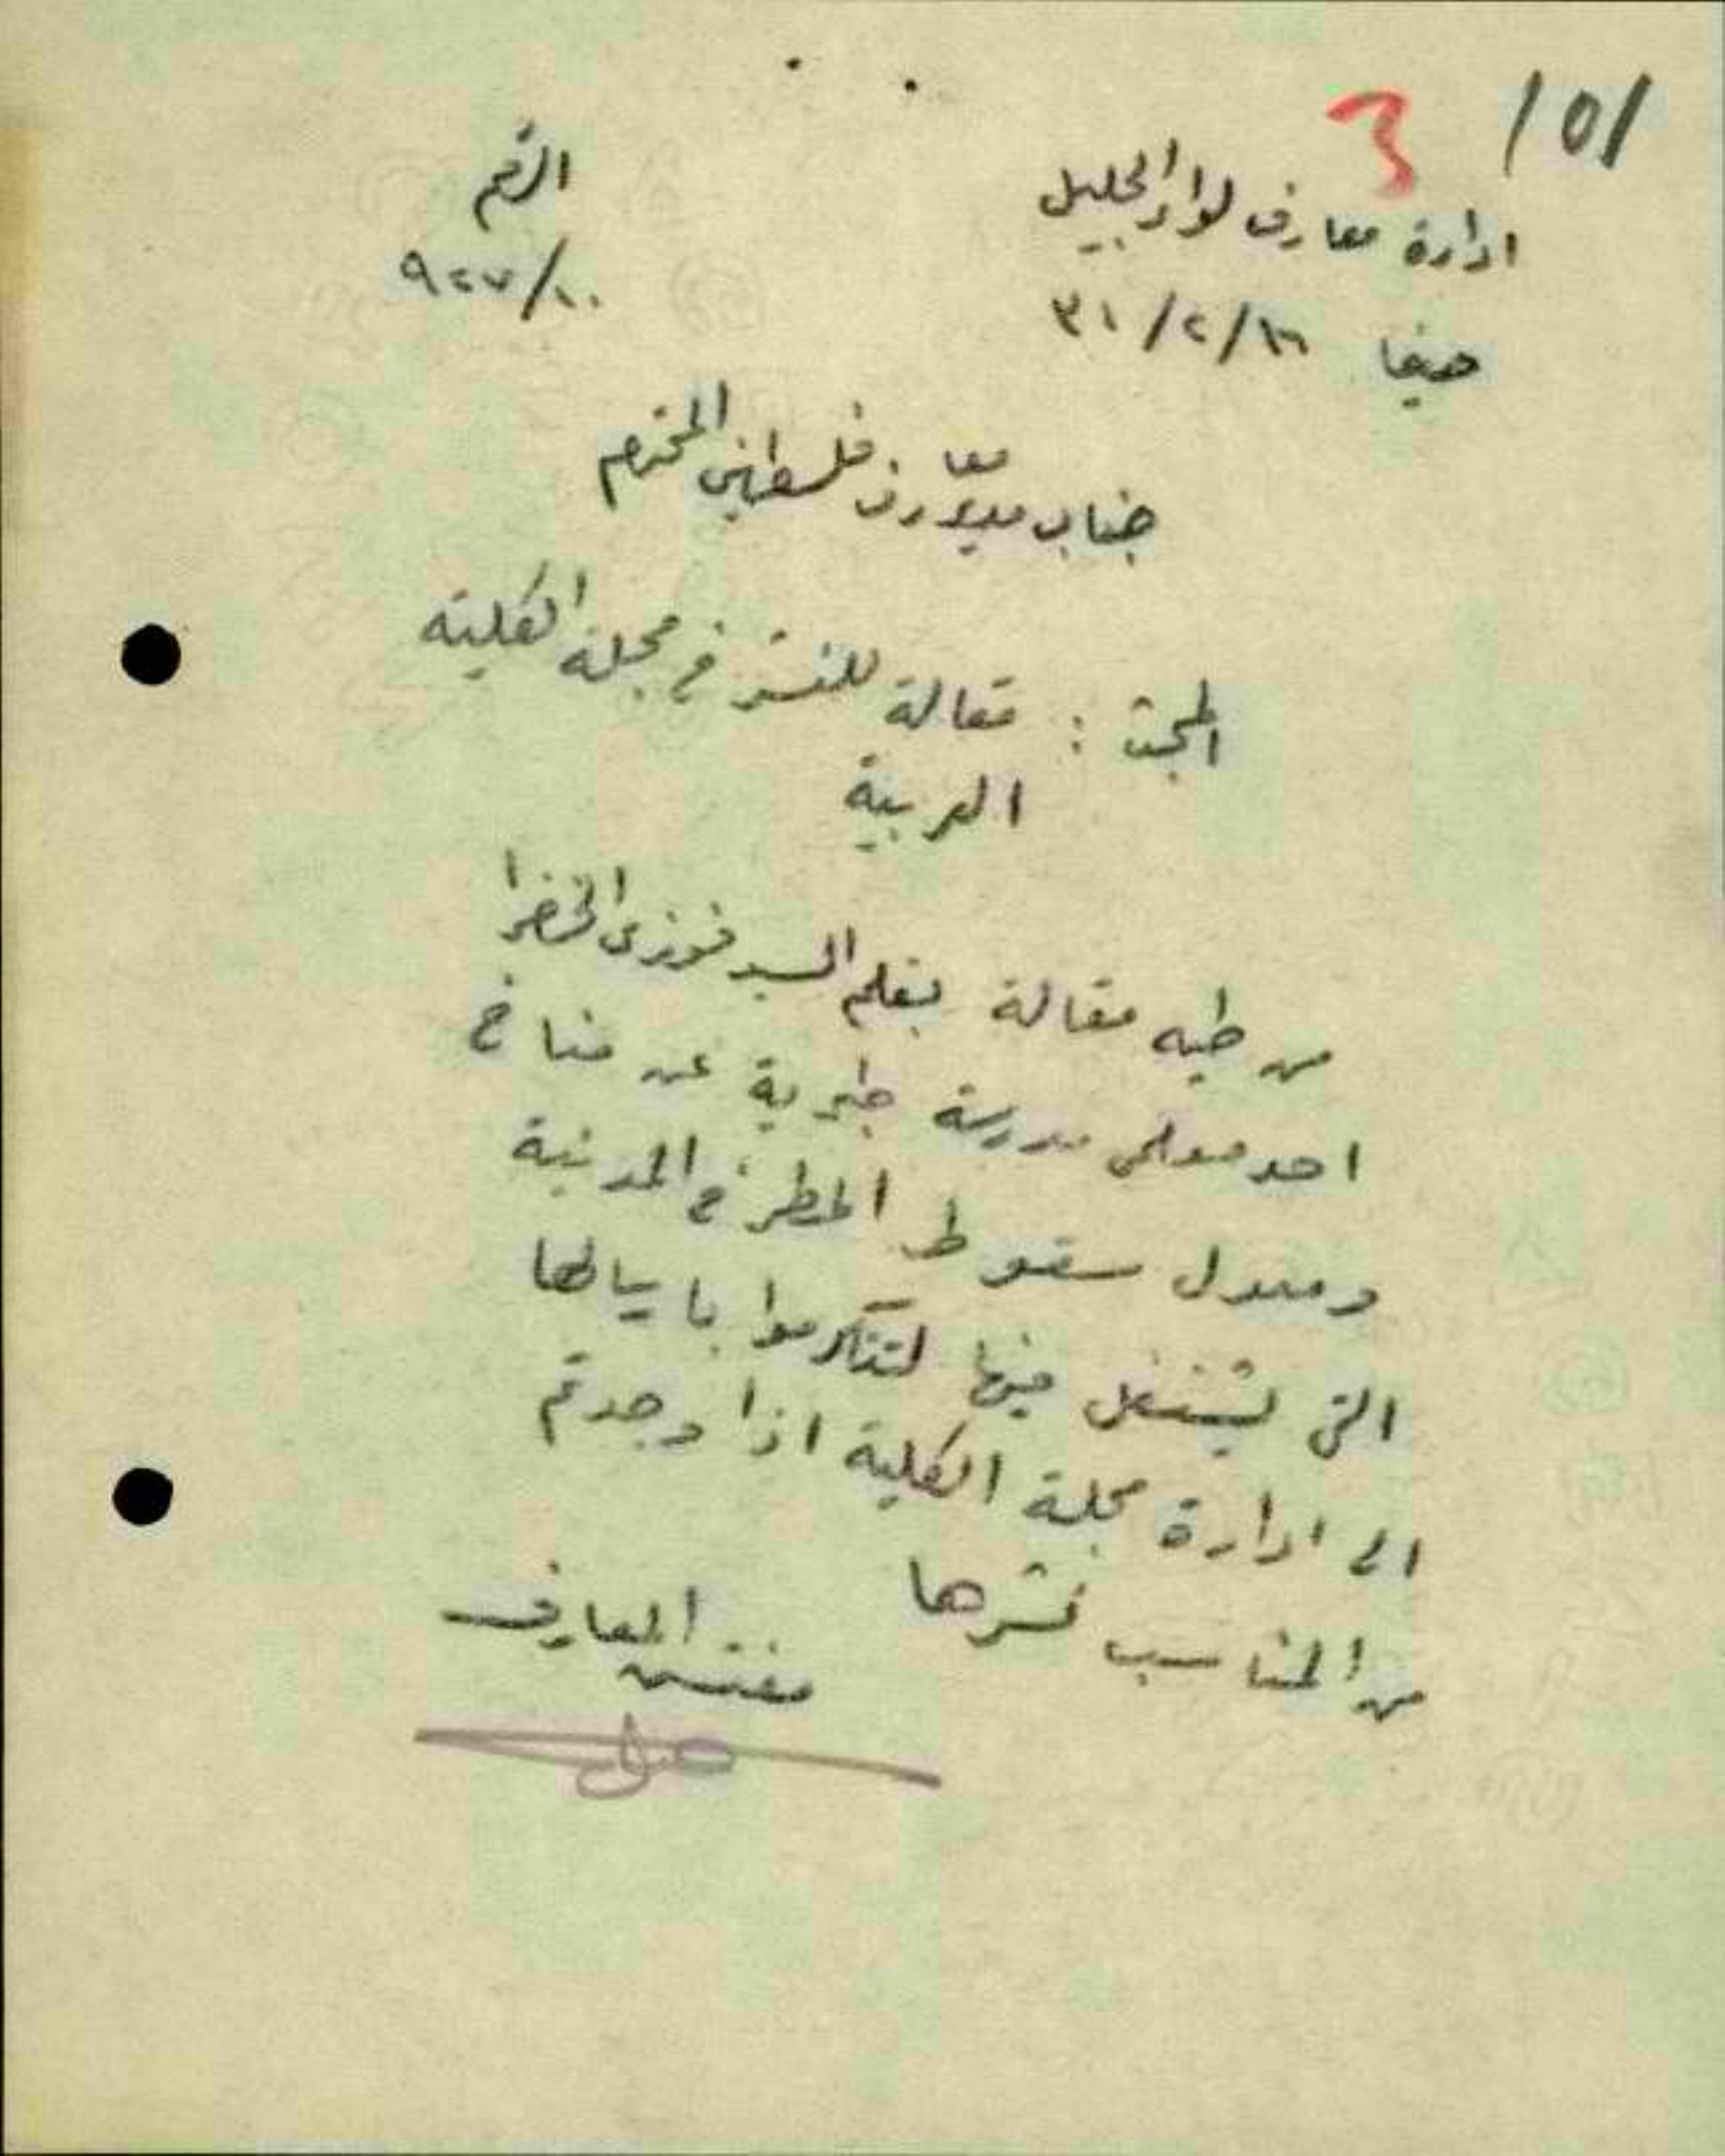 101
3
ادارة معارف لواء الجليل
الرقم
حيفا ١٦/٢/٣١
٩٢٧/١٠
جناب مدير معارف فلسطين المحترم
المبحث : مقالة للنشر في مجلة الكلية
العربية
من طيه مقالة بقلم السيد فوزي الخضرا
احد معلمي مدرسة طبرية عن مناخ
ومعدل سقوط المطر في المدينة
التي يشتغل فيها لتتكرموا بايصالها
الى ادارة مجلة الكلية اذا وجدتم
من المناسب نشرها
مفتش المعارف